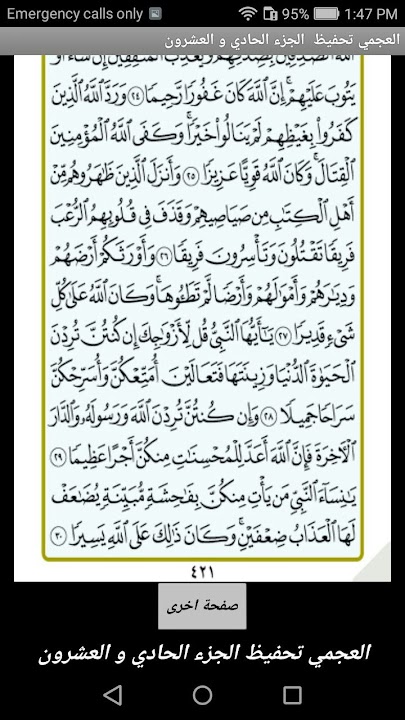 Emergency calls only 95% 1:47 PM
العجمي تحفيظ الجزء الحادي و العشرون
يَتُوبَ عَلَيْهِمْ ۚ إِنَّ ٱللَّهَ كَانَ غَفُورًا رَّحِيمًا ٢٤ وَرَدَّ ٱللَّهُ ٱلَّذِينَ
كَفَرُوا۟ بِغَيْظِهِمْ لَمْ يَنَالُوا۟ خَيْرًا ۚ وَكَفَى ٱللَّهُ ٱلْمُؤْمِنِينَ
ٱلْقِتَالَ ۚ وَكَانَ ٱللَّهُ قَوِيًّا عَزِيزًا ٢٥ وَأَنزَلَ ٱلَّذِينَ ظَٰهَرُوهُم مِّنْ
أَهْلِ ٱلْكِتَٰبِ مِن صَيَاصِيهِمْ وَقَذَفَ فِى قُلُوبِهِمُ ٱلرُّعْبَ
فَرِيقًا تَقْتُلُونَ وَتَأْسِرُونَ فَرِيقًا ٢٦ وَأَوْرَثَكُمْ أَرْضَهُمْ
وَدِيَٰرَهُمْ وَأَمْوَٰلَهُمْ وَأَرْضًا لَّمْ تَطَـُٔوهَا ۚ وَكَانَ ٱللَّهُ عَلَىٰ كُلِّ
شَىْءٍ قَدِيرًا ٢٧ يَٰٓأَيُّهَا ٱلنَّبِىُّ قُل لِّأَزْوَٰجِكَ إِن كُنتُنَّ تُرِدْنَ
ٱلْحَيَوٰةَ ٱلدُّنْيَا وَزِينَتَهَا فَتَعَالَيْنَ أُمَتِّعْكُنَّ وَأُسَرِّحْكُنَّ
سَرَاحًا جَمِيلًا ٢٨ وَإِن كُنتُنَّ تُرِدْنَ ٱللَّهَ وَرَسُولَهُۥ وَٱلدَّارَ
ٱلْـَٔاخِرَةَ فَإِنَّ ٱللَّهَ أَعَدَّ لِلْمُحْسِنَٰتِ مِنكُنَّ أَجْرًا عَظِيمًا ٢٩
يَٰنِسَآءَ ٱلنَّبِىِّ مَن يَأْتِ مِنكُنَّ بِفَٰحِشَةٍ مُّبَيِّنَةٍ يُضَٰعَفْ
لَهَا ٱلْعَذَابُ ضِعْفَيْنِ ۚ وَكَانَ ذَٰلِكَ عَلَى ٱللَّهِ يَسِيرًا ٣٠
٤٢١
صفحة اخرى
العجمي تحفيظ الجزء الحادي و العشرون